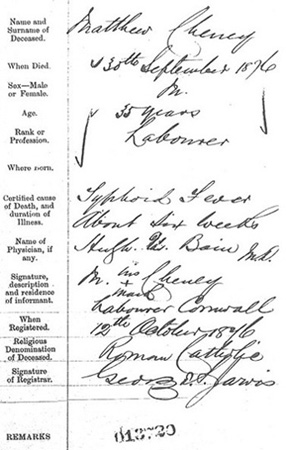 Name and
Surname of
Deceased.
Matthew Cheney
When Died.
30th September 1876
Sex—Male
or Female.
M.
Age.
35 years
Rank or
Profession.
Labourer
Where born.
Certified cause
of Death, and
duration of
Illness.
Typhoid Fever
About six weeks
Name of
Physician, if
any.
Hugh Bain M.D.
Signature,
description
and residence
of informant.
M. his + mark Cheney
Labourer Cornwall
When
Registered.
12th October 1876
Religious
Denomination
of Deceased.
Roman Catholic
Signature
of Registrar.
Jarvis
REMARKS
013720